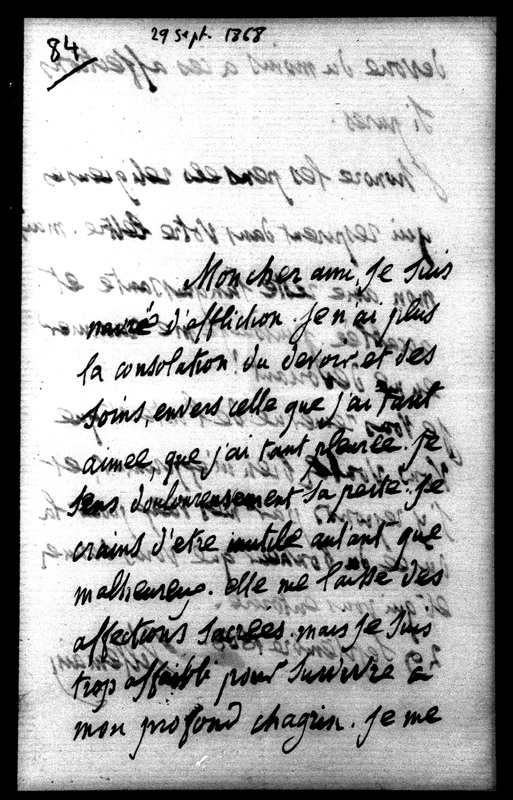 84
29 Sept. 1868
Mon cher ami, je suis
navré d'affliction. je n'ai plus
la consolation du devoir et des
soins, envers celle que j'ai tant
aimée, que j'ai tant pleurée. je
sens douloureusement sa perte. je
crains d'etre inutile autant que
malheureux. elle me laisse des
affections sacrées. mais je suis
trop affaibli pour survivre à
mon profond chagrin. je me